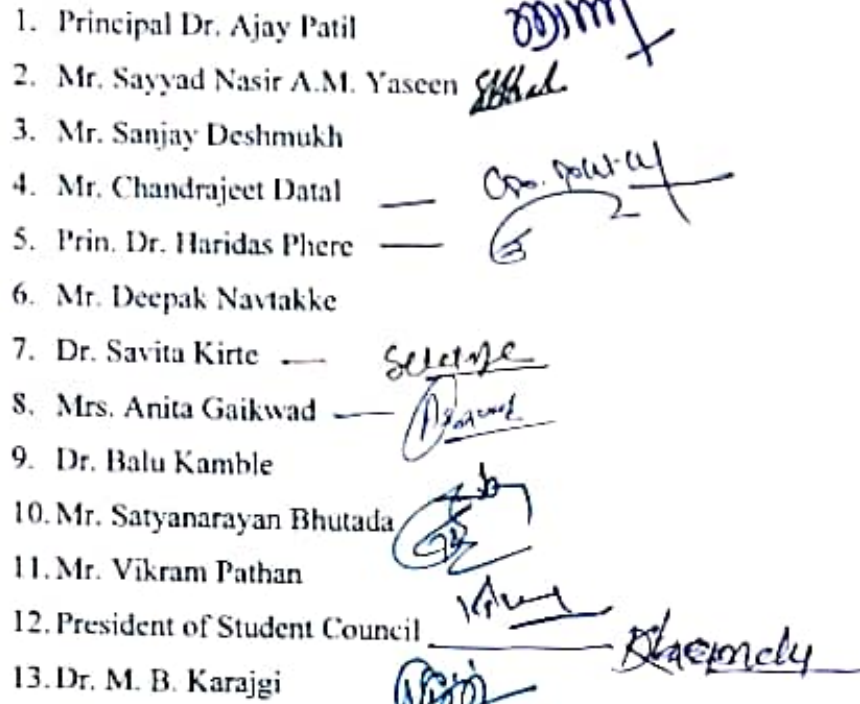 1. Principal Dr. Ajay Patil
2. Mr. Sayyad Nasir A.M. Yaseen
3. Mr. Sanjay Deshmukh
4. Mr. Chandrajeet Datal
5. Prin. Dr. Haridas Phere
6. Mr. Deepak Navtakke
7. Dr. Savita Kirte
8. Mrs. Anita Gaikwad
9. Dr. Balu Kamble
10. Mr. Satyanarayan Bhutada
11. Mr. Vikram Pathan
12. President of Student Council
13. Dr. M. B. Karajgi